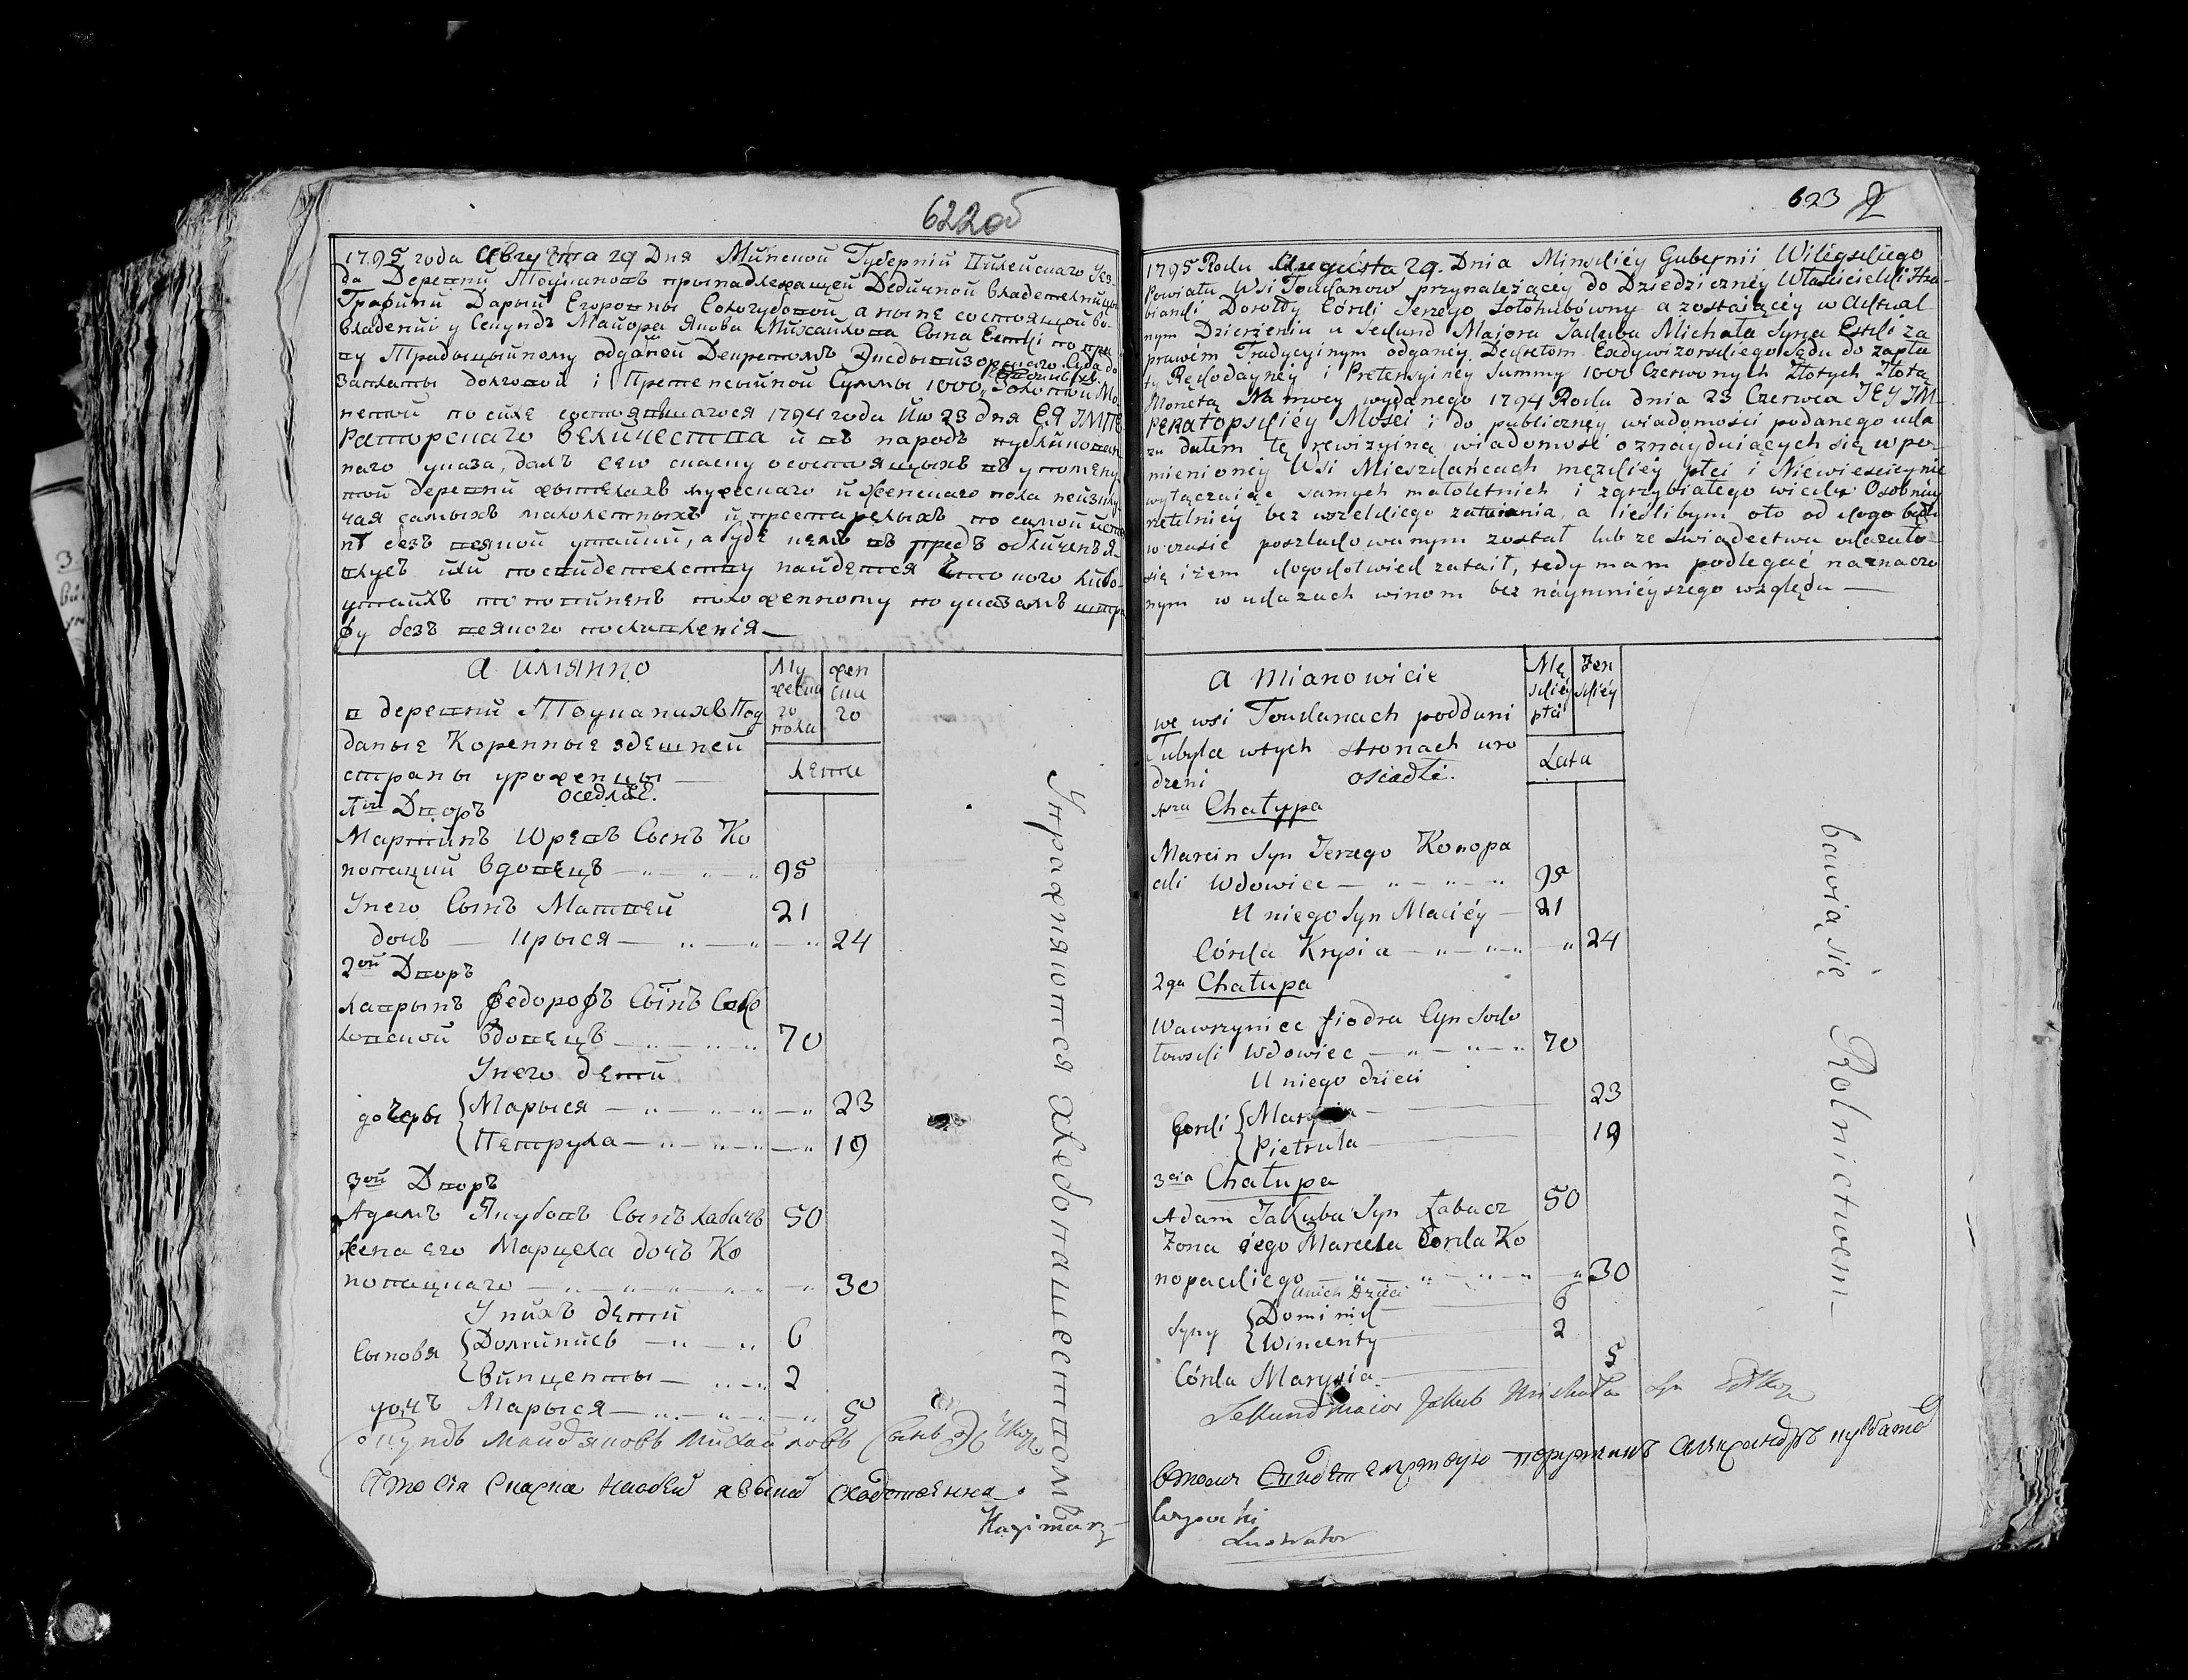 622об
1795 года Августа 29 Дня Минской Губерній Вилейскаго Уез-
да Деревни Тоукановъ принадлежащей Дедичной владетелницы
Графини Дарьи Егоровны Сологубовой а ныне состоящой во
владеніи у Секундъ Майора Якова Михайлова Сына Естки по пра
ву Традыцыйному одданой Декретомъ Экедывизорскаго Суда до
Заплаты долговой і Претенсыйной Суммы 1000 Червоныхъ Золотыхъ Мо
нетой по силе состоявшагося 1794 года Июня 23 дня ЕЯ ІМПЕ
Раторскаго Величества и въ народъ публикован
наго указа, далъ сею скаску о состоящыхъ въ упомяну
той деревни жытеляхъ мужескаго и женскаго пола неизклю
чая самыхъ малолетныхъ и престарелыхъ по самой исти
не безъ всякой утайки, а буде кемъ въ предъ обличенъ я
влусь или по свидетелству найдется что кого либо
утаилъ то повиненъ положенному по указамъ штра
фу безъ всякого послабленія
а имянно
Му
жеска
го
пола
жен
ска
го
в деревни Тоуканахъ Под
даные Коренные здешней
страны уроженцы
оседлые.
лета
1ой Дворъ
Мартинъ Юревъ Сынъ Ко
нопацкий вдовецъ 95
У него Сынъ Матвей 21
дочь Крыся 24
2ой Дворъ
Лаврынъ Федорофъ Сынъ Соко
ловской Вдовецъ 70
У него дети
дочеры Марыся 23
Петруля 19
3ой Дворъ
Адамъ Якубовъ Сынъ Лабачъ 50
жена его Марцеля дочь Ко
нопацкаго 30
У нихъ дети
Сыновя Доминикъ 6
Винценты 2
дочъ Марыся 5
Упражняются хлебопашествомъ
Секундъ Майор Яковъ Михайловъ Сынъ
Что сія Скаска Мною
Kazimierz
623 2
1795 Roku Augusta 29. Dnia Mińskiéy Gubernii Wileyskiego
Powiatu Wsi Toukanow przynależącey do Dziedzicznéy Właścicielki Hra-
bianki Doroty Córki Jerzego Sołohubówny a zostaiącéy w Aktual
nym Dzierżeniu u Sekund Majora Jakuba Michała Syna Estki za
prawem Tradycyinym oddaney Dekretem Exdywizorskiego Sądu do zapła
ty Rękodayney i Pretensyiney Summy 1000 Czerwonych Złotych Złotą
Monetą Na mocy wydanego 1794 Roku dnia 23 Czerwca JEY IM
PERATORskiéy Mości i do publiczney wiadomości podanego uka
zu dałem tę rewizyiną wiadomość o znayduiących się w po
mienioney Wsi Mieszkańcach męzkiéy płci i Niewiesciey nie
wyłączaiąc samych małoletnich i zgrzybiałego wieku Osobni
netelniéy bez wszelkiego zataiania, a ieślibym oto od kogo bądź
w czasie poszlakowanym został lub ze świadectwa okazało
się iżem kogokolwiek zataił, tedy mam podlegać naznaczo
nym w ukazach winom bez náymniéyszego względu
a mianowicie
Mę
skiéy
płci
Zen
skiéy
we wsi Toukanach poddani
Tubylce w tych stronach uro
dzeni osiadli.
Lata
1wsza Chałuppa
Marcin Syn Jerzego Konopa
cki Wdowiec 95
U niego Syn Maciéy 21
Córka Krysia 24
2ga Chałupa
Wawrzyniec Fiodra Syn Soko
łowski Wdowiec 70
U niego dzieci
Corki Marysia 23
Pietrula 19
3cia Chałupa
Adam Jakuba Syn Łabacz 50
Żona jego Marcela Corka Ko
nopackiego 30
U nich Dzieci
Syny Dominik 6
Wincenty 2
Córka Marysia 5
bawią się Rolnictwem
Sekund maior Jakub Michała Syn Estko
Lustrator